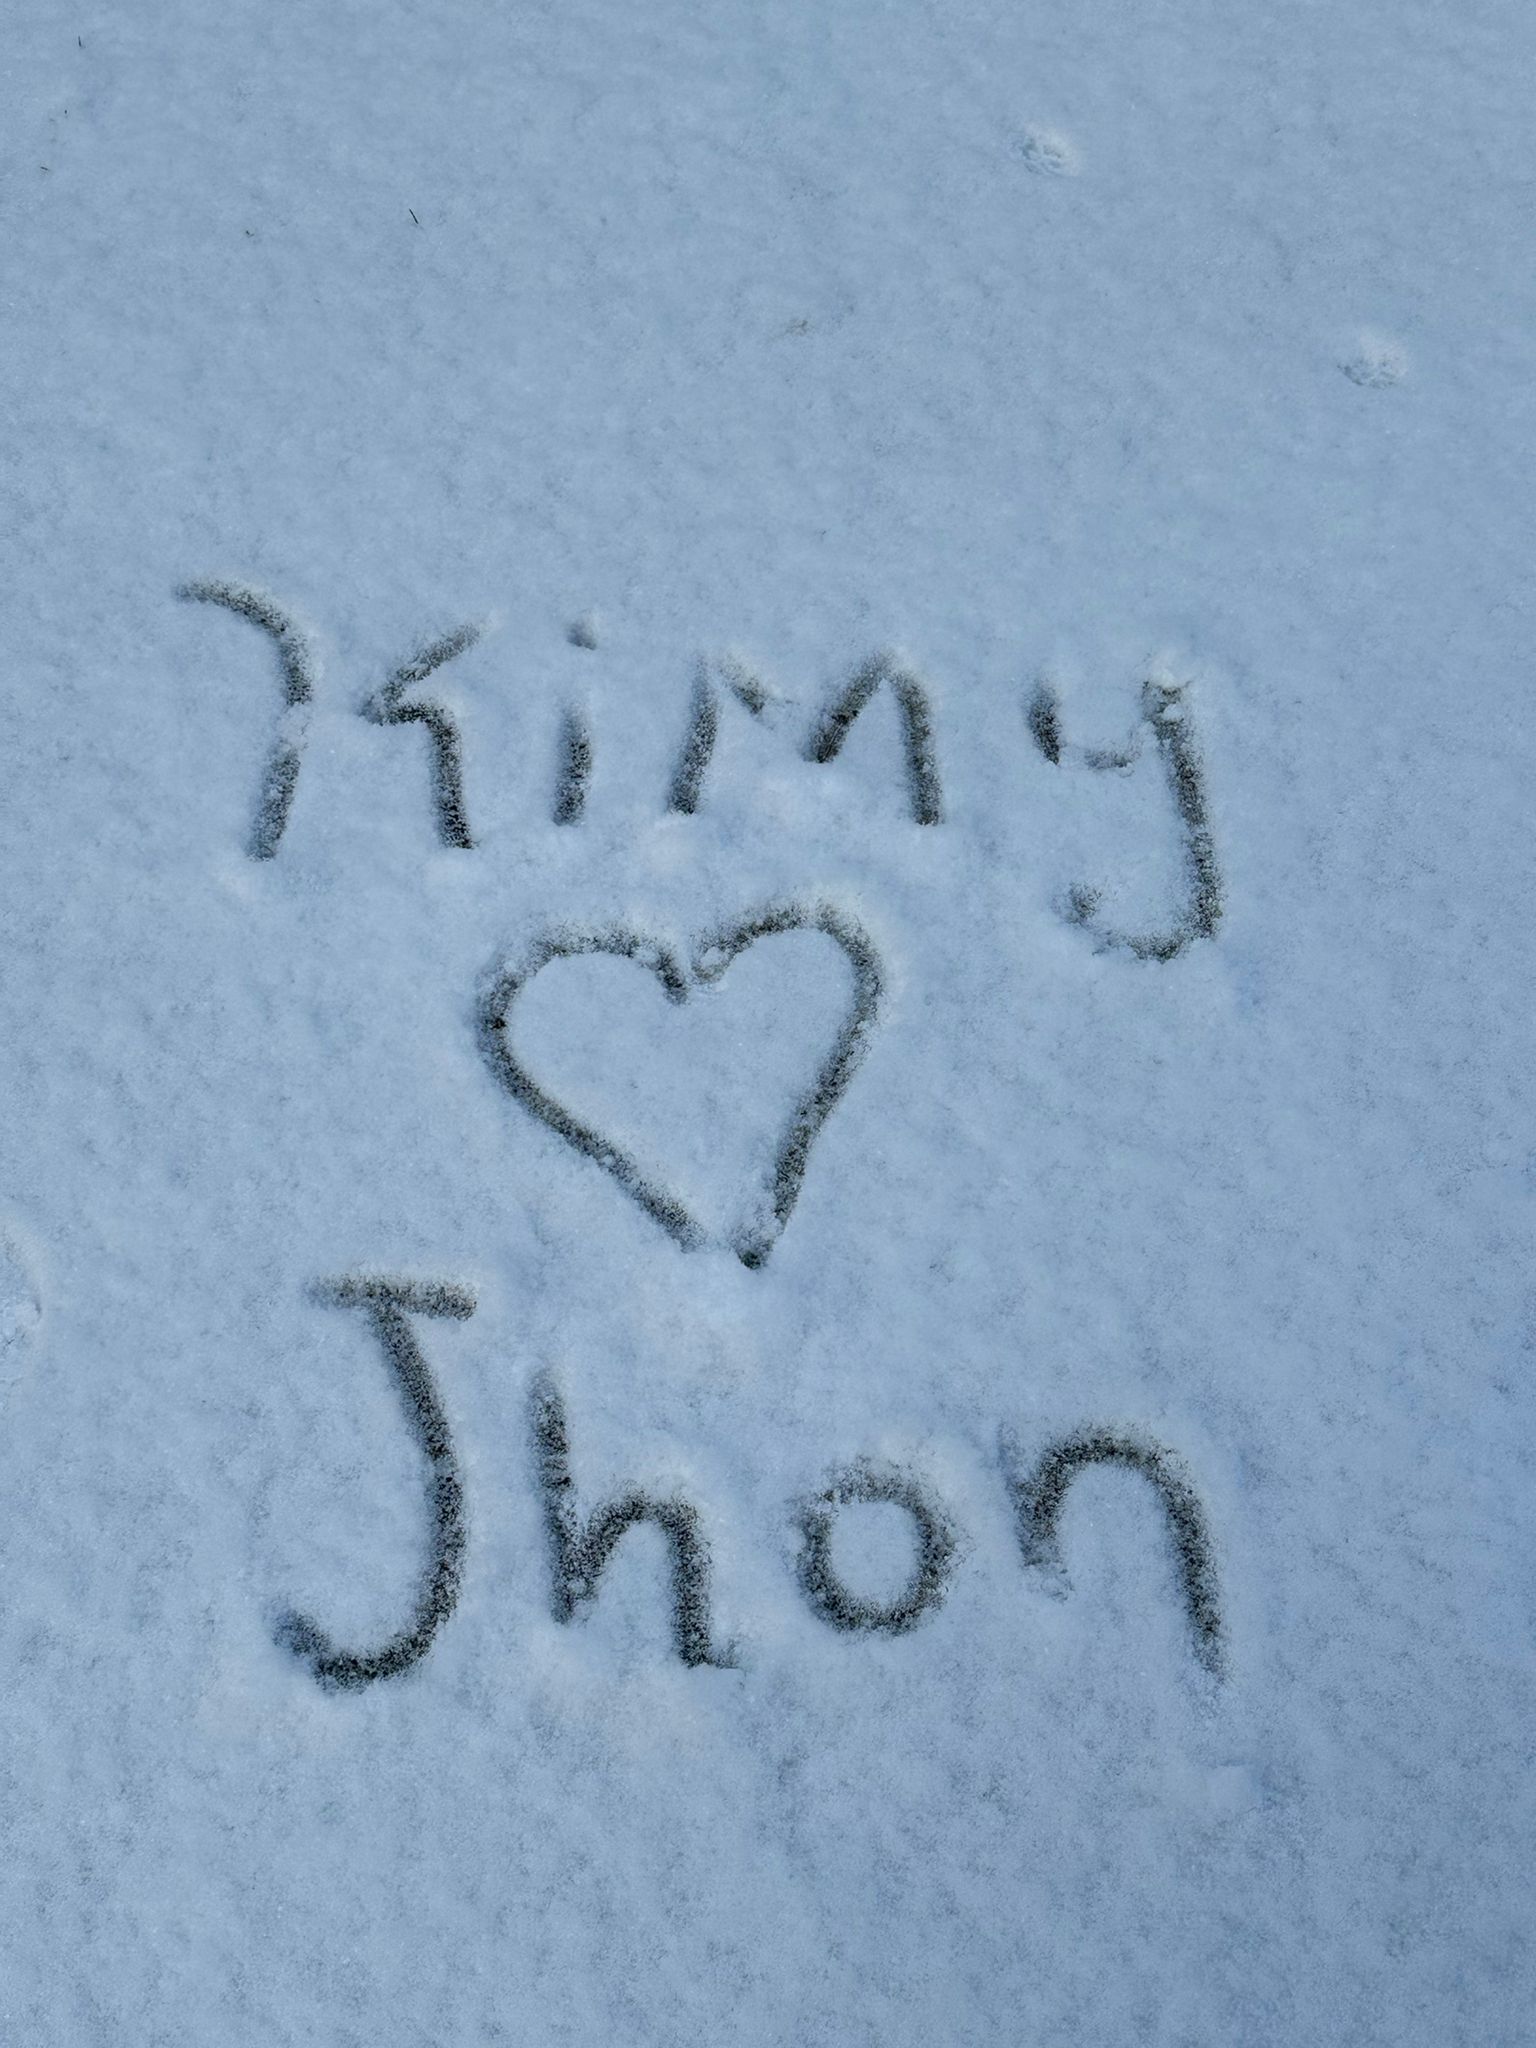 Kimy
♡
Jhon